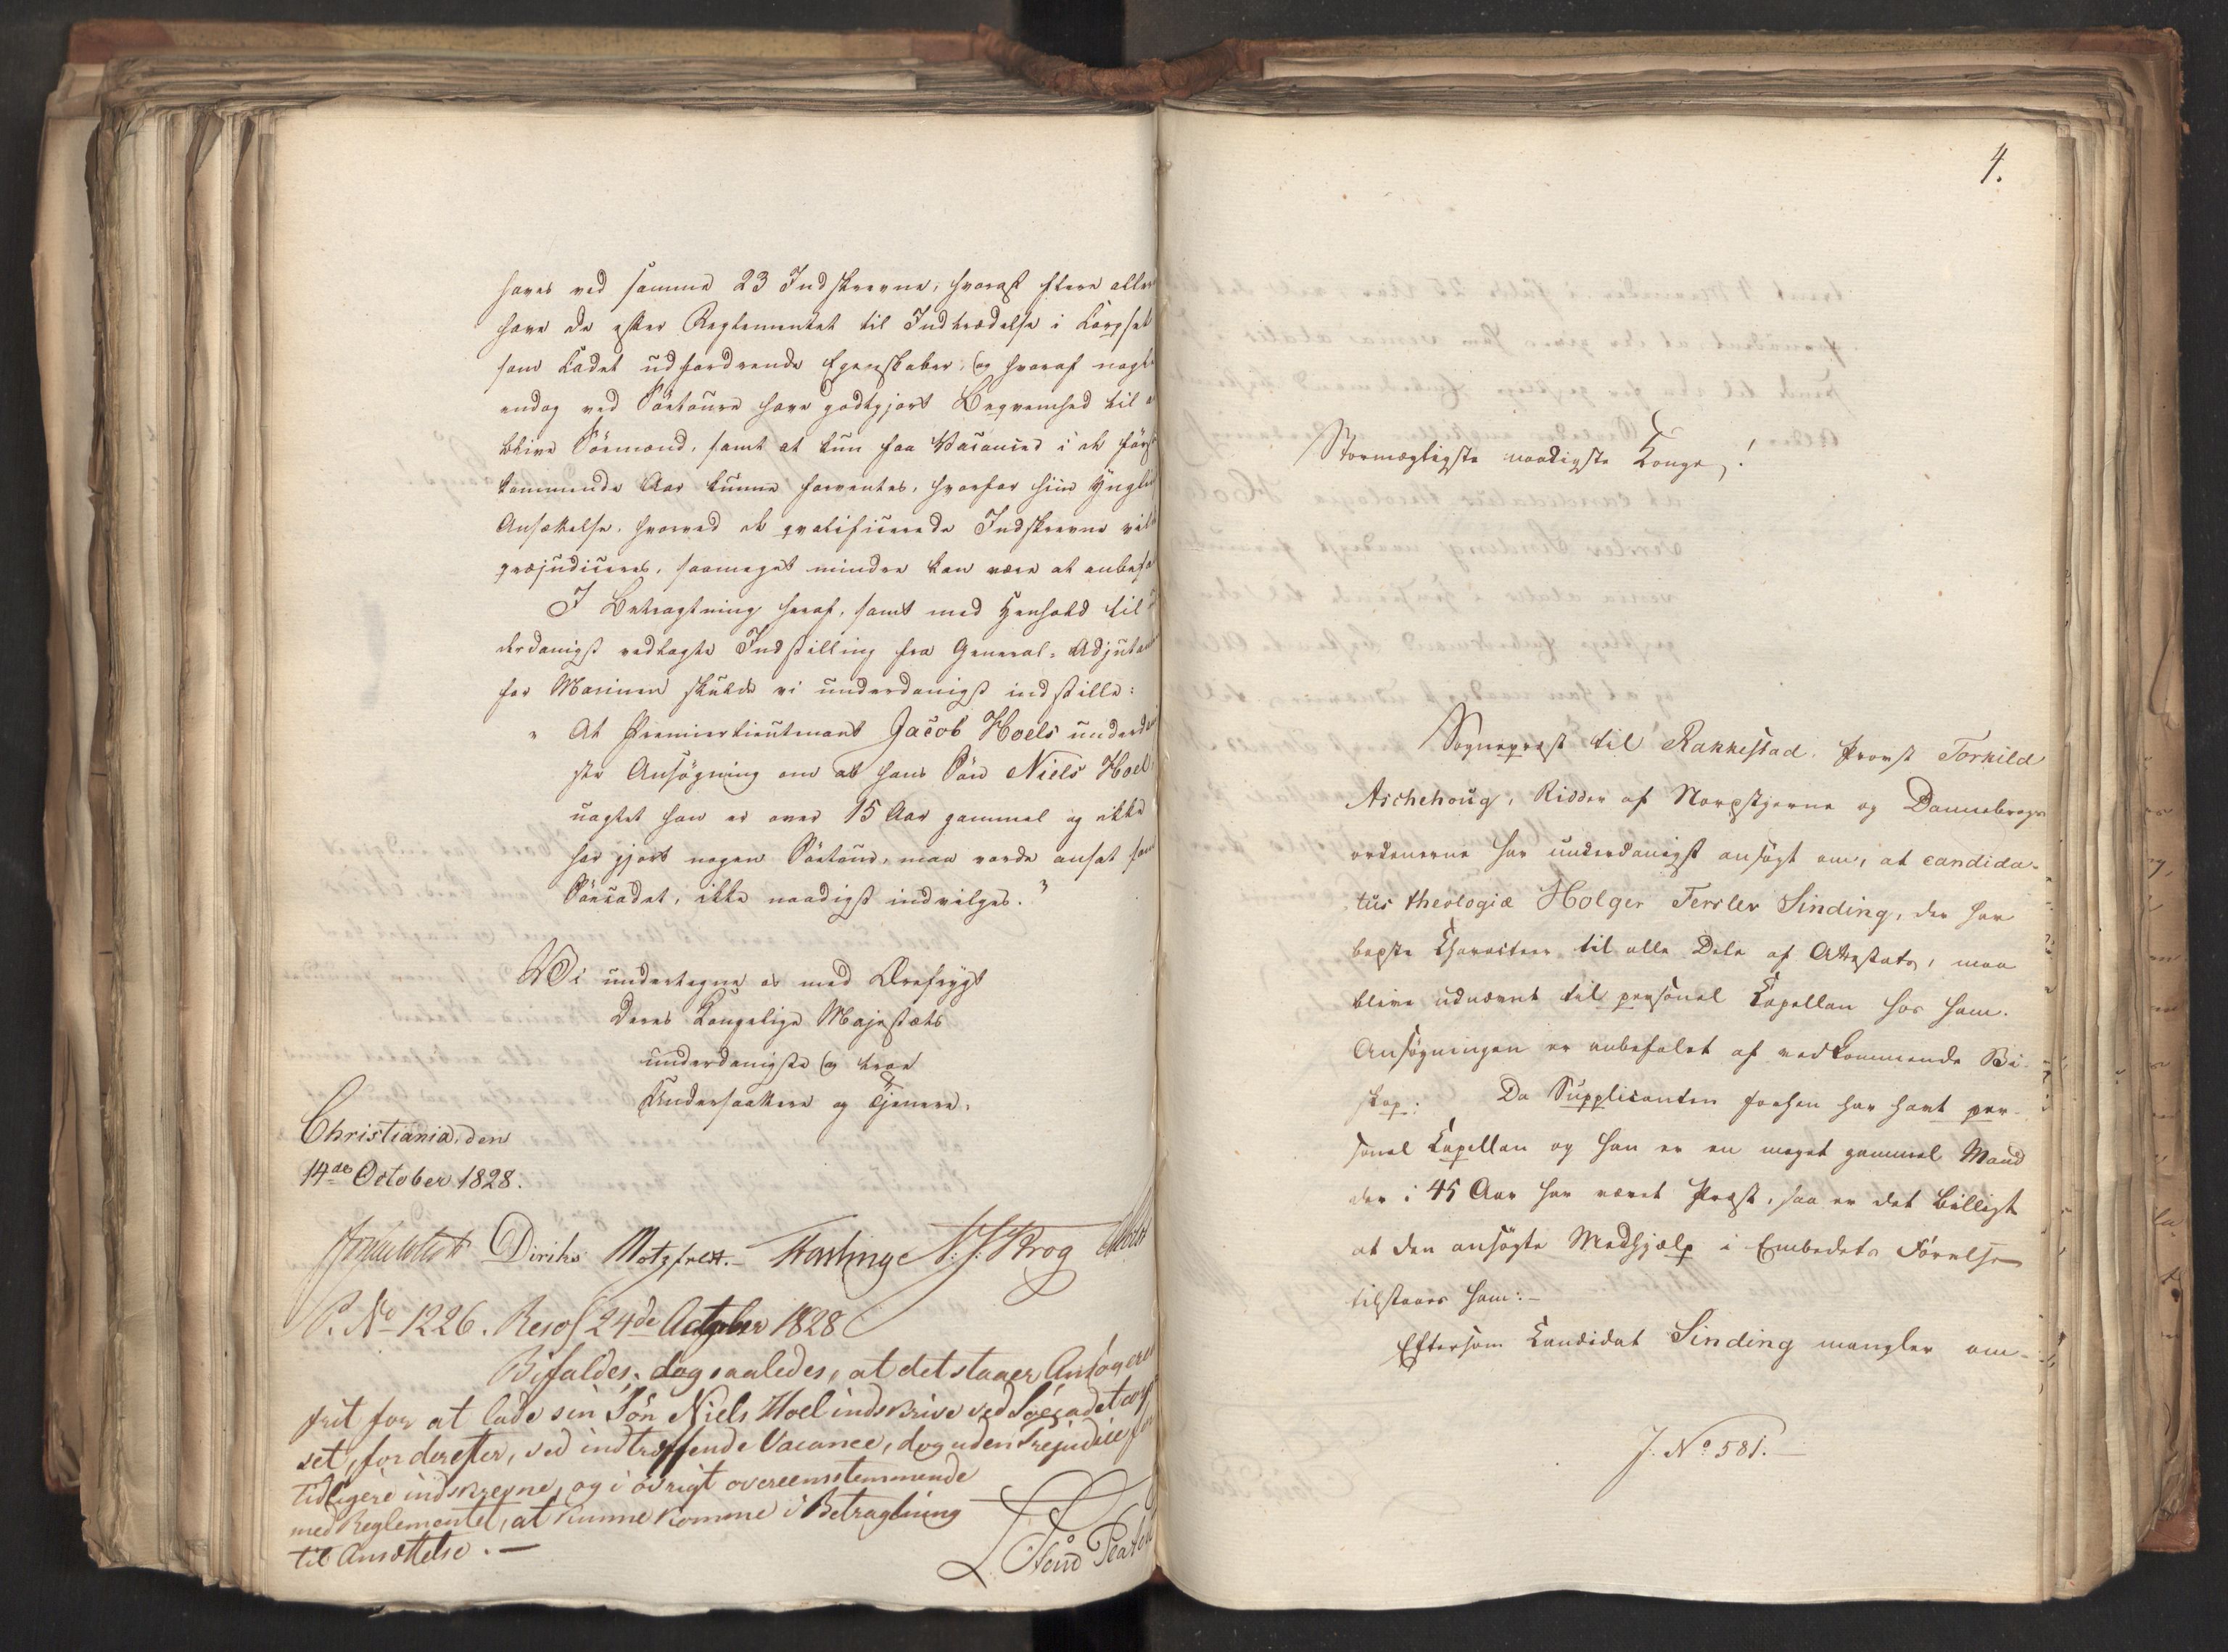 haves ved samme 23 Indskrevne, hvoraf flere aller
have de efter Reglementet til Indtrædelse i Corpset
som Cadet udfordrende Egenskaber, og hvoraf nogle
endog ved Söetoure have godtgjort Beqvemhed til a
blive Sömænd, samt at kun faa Vacancer i det först
kommende Aar kunne forventes, hvorfor hiin Ynglin
Ansættelse, hvorved de qvalificerede Indskrevne vild
præjudiceres, saameget mindre kan være at anbefa
I Betragtning heraf, samt med Henhold til
derdanigst vedlagte Indstilling fra General-Adjutan
for Marinen skulde vi underdanigst indstille:
" At Premierlieutenant Jacob Hoels underda
ste Ansögning om at hans Sön Niels Hoel
uagtet han er over 15 Aar gammel og ikke
har gjort nogen Söetour, maa vorde ansat som
Söecadet, ikke naadigst indvilges."
Vi undertegne os med Ærefrygt
Deres Kongelige Majestæts
underdanigste og troe
Undersaattere og Tjenere,
Christiania, den
14de October 1828.
Diriks Motzfeldt.- N. J. Krog
P. No 1226. Resol 24de October 1828
Bifaldes, dog saaledes, at det staaer Ansögeren
frit for at lade sin Sön Niels Hoel indskrive ved Söecadetcorp
set, for derefter, ved indtræffende Vacance, dog uden Præjudice for
tidligere indskrevne, og i övrigt overeensstemmende
med Reglementet, at kunne komme i Betragtning
til Ansættelse.-
4.
Stormægtigste naadigste Konge!
Sognepræst til Rakkestad, Provst Torkild
Aschehoug, Ridder af Nordstjerne og Dannebrogs
ordenerne har underdanigst ansögt om, at candida-
tus theologiæ Holger Fersler Sinding, der har
bedste Character til alle Dele af Attestats, maa
blive udnævnt til personel Capellan hos ham.
Ansögningen er anbefalet af vedkommende Bi-
skop. Da Supplicanten forhen har havt per-
sonel Capellan og han er en meget gammel Mand
der i 45 Aar har været Præst, saa er det billigt
at den ansögte Medhjælp i Embedets Förelse
tilstaaes ham.-
Eftersom Candidat Sinding mangler om-
J. No 581.